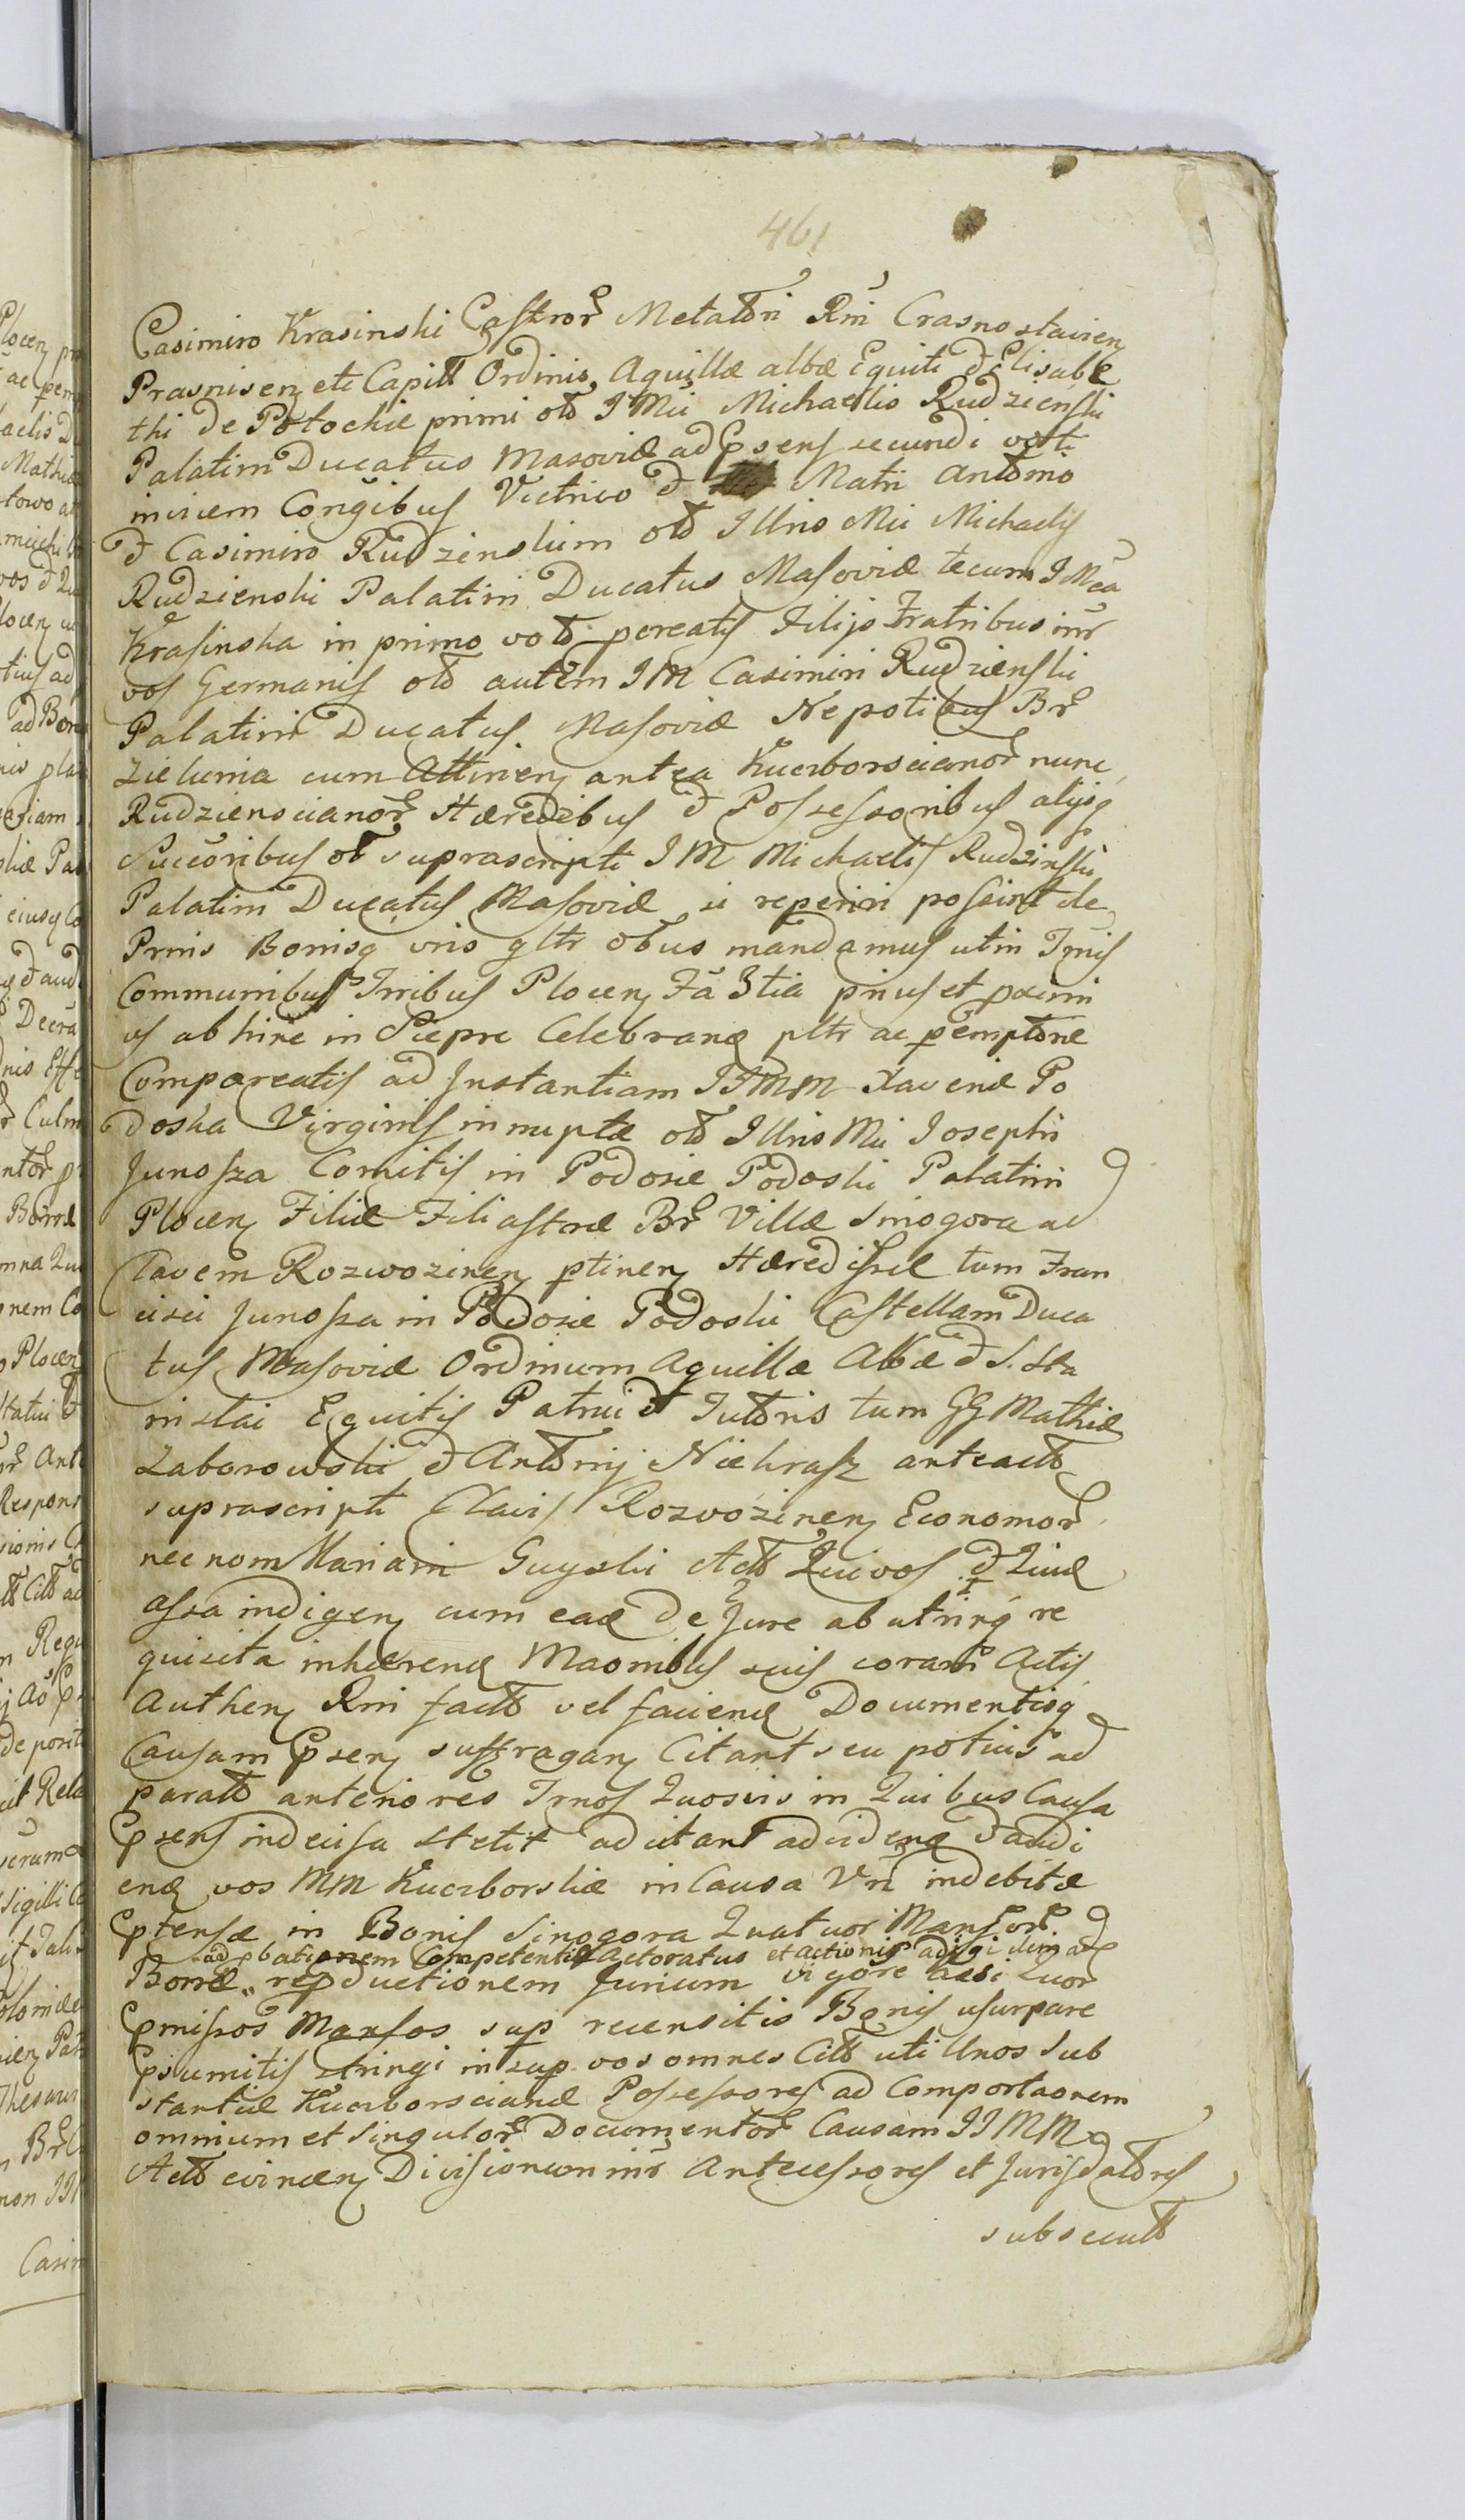 461
Casimiro Krasinski Castror Metatori Rni Crasnostavien
Prasnisen etc Capitt Ordinis Aquillæ albæ Equiti & Elisabe
thi de Potockie primi otb IMci Michaelis Rudzienski
Palatini Ducatus Masoviæ ad psens secundi vott
invicem Congibus Victrico & Matri Antonio
& Casimiro Rudzienskim otb Illris Mci Michaelis
Rudzienski Palatini Ducatus Masoviæ tecum IMca
Krasinska in primo voto pcreatis Filijs Fratribus inr
vos Germanis otb autem IM Casimiri Rudzienski
Palatini Ducatus Masoviæ Nepotibus Br
Zielunia cum Attinen antea Kuczborscianor nunc
Rudzienscianor Hæredibus & Possessoribus alijsq
Succoribus ot suprascripti IM Michaelis Rudzinski
Palatini Ducatus Masoviæ si reperiri possint de
Prnis Bonisq vris gltr obus mandamus ut in Trnis
Communibus Trribus Plocen Fa 3tia prius et pximi
us ab hinc in Sieprc Celebrand pltr ac pemptorie
Compareatis ad Instantiam IIMM Xaveriæ Po
doska Virginis innuptæ otb Illris Mci Iosephi
Junosza Comitis in Podosie Podoski Palatini
Plocen Filiæ Filiastræ Br Villæ Sinogora ad
Clavem Rozwozinen ptinen Hæredissæ tum Fran
cisci Junosza in Podosie Podoski Castellani Duca
tus Masoviæ Ordinum Aquillæ Albæ & S. Sta
nislai Equitis Patrui & Tutoris tum GG Mathiæ
Zaborowski & Antonij Niekrasz anteactb
suprascripti Clavis Rozwozinen Economor
nec non Mariani Guyski Actb Qui vos & Quud
assa indigen cum ead de Jure ab utrinq re
quisita inhærend Maonibus suis coram Actis
Authen Rni factb vel faciend Documentisq
Causam psen suffragan Citant seu potius ad
paratb anteriores Trnos Quosvis in Quibus Causa
psens indecisa stetit adcitant ad vidend & audi
end vos MM Kuczborskiæ in Causa Vri indebitæ
ptensæ in Bonis Sinogora Quatuor Mansor
ad pbationem Competentiæ Actoratus et actionis adigi dein ad
Bonæ repductionem Jurium vigore Quor
pmissos Mansos sup recensitis Bonis usurpare
psumitis stringi insup vos omnes Citb uti Unos Sub
stantiæ Kuczborscianæ Possessores ad Comportaonem
omnium et singulor Documentor Causam IIMM
Actb evincen Divisionum inr Antecessores et Jurisdatores
subsecutb